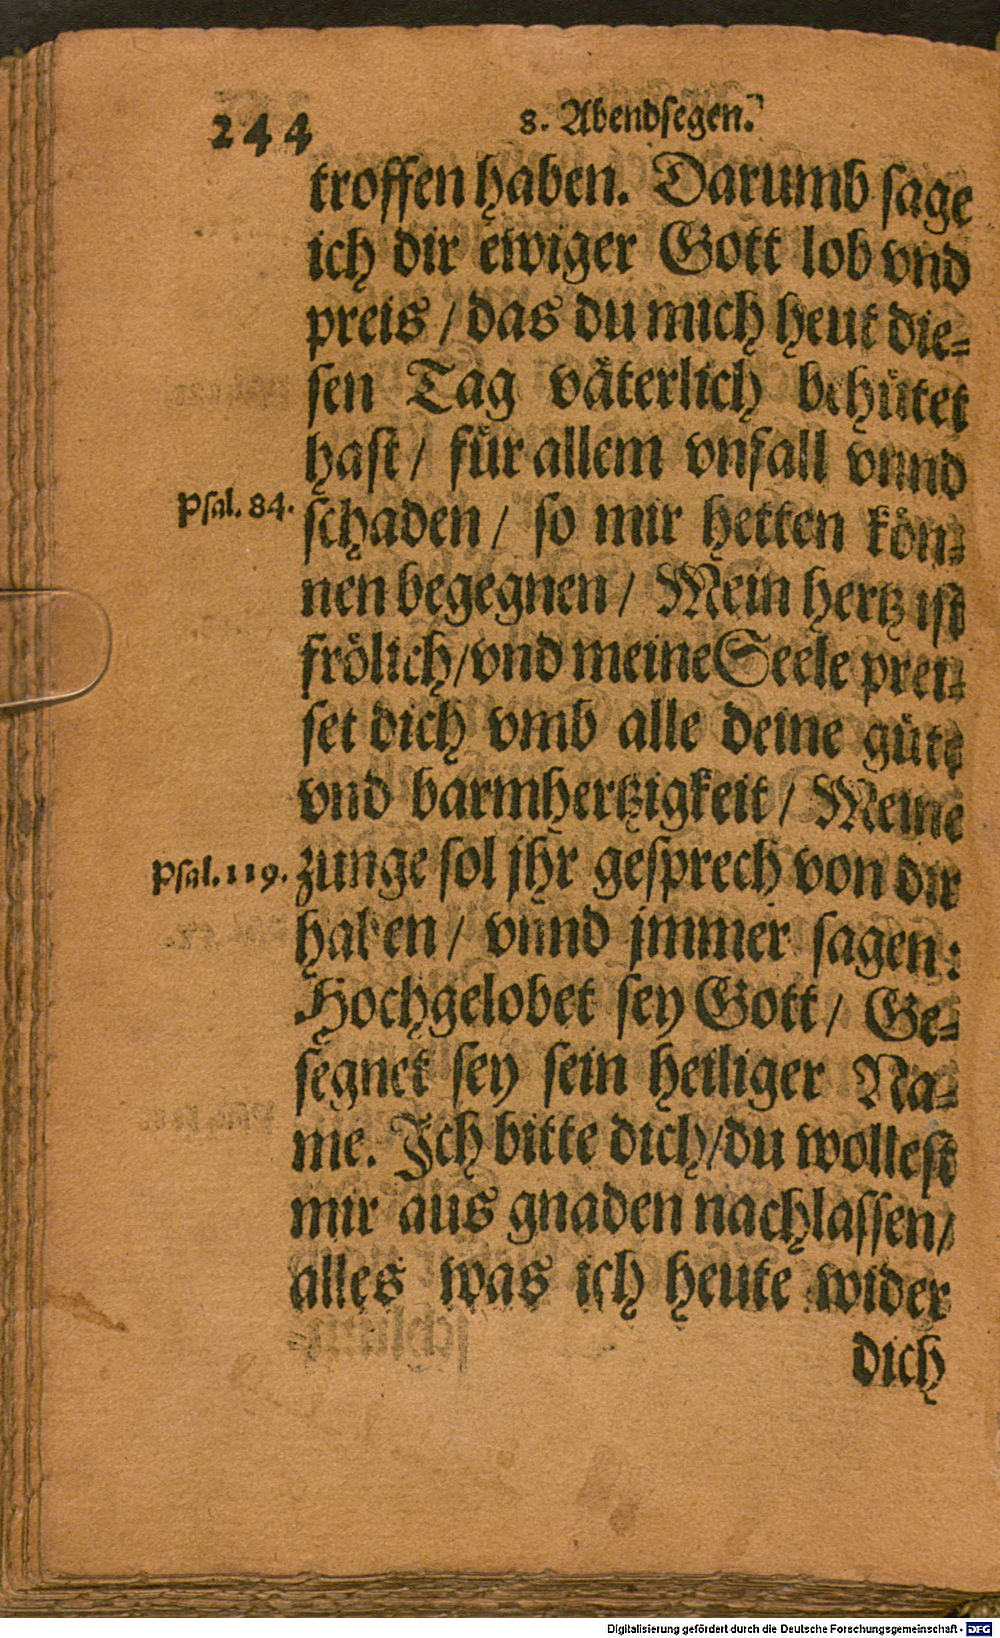 244
8. Abendsegen.
troffen haben. Darumb sage
ich dir ewiger Gott lob vnd
preis / das du mich heut die-
sen Tag väterlich behütet
hast / für allem vnfall vnnd
Psal. 84. schaden / so mir hetten kön-
nen begegnen / Mein hertz ist
frölich / vnd meine Seele prei-
set dich vmb alle deine güte
vnd barmhertzigkeit / Meine
Psal. 119. zunge sol jhr gesprech von dir
haben / vnnd jmmer sagen:
Hochgelobet sey Gott / Ge-
segnet sey sein heiliger Na-
me. Ich bitte dich / du wollest
mir aus gnaden nachlassen /
alles was ich heute wider
dich
Digitalisierung gefördert durch die Deutsche Forschungsgemeinschaft - DFG